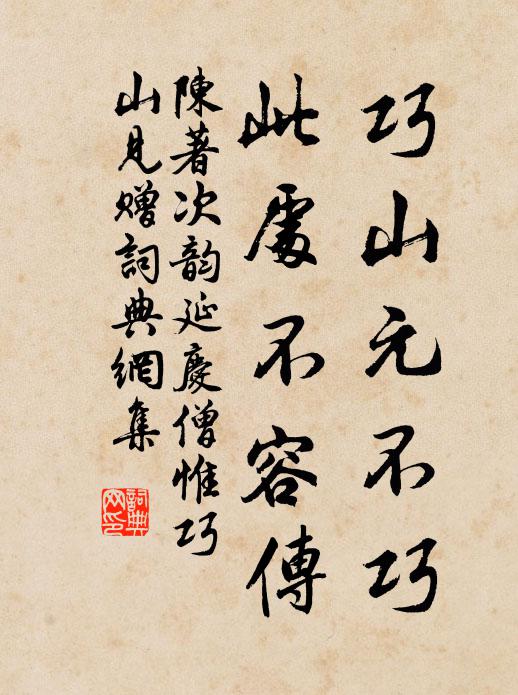 巧山元不巧
此處不容傳
陳著次韵延慶僧惟巧
山見贈詞典網集
詞典网印